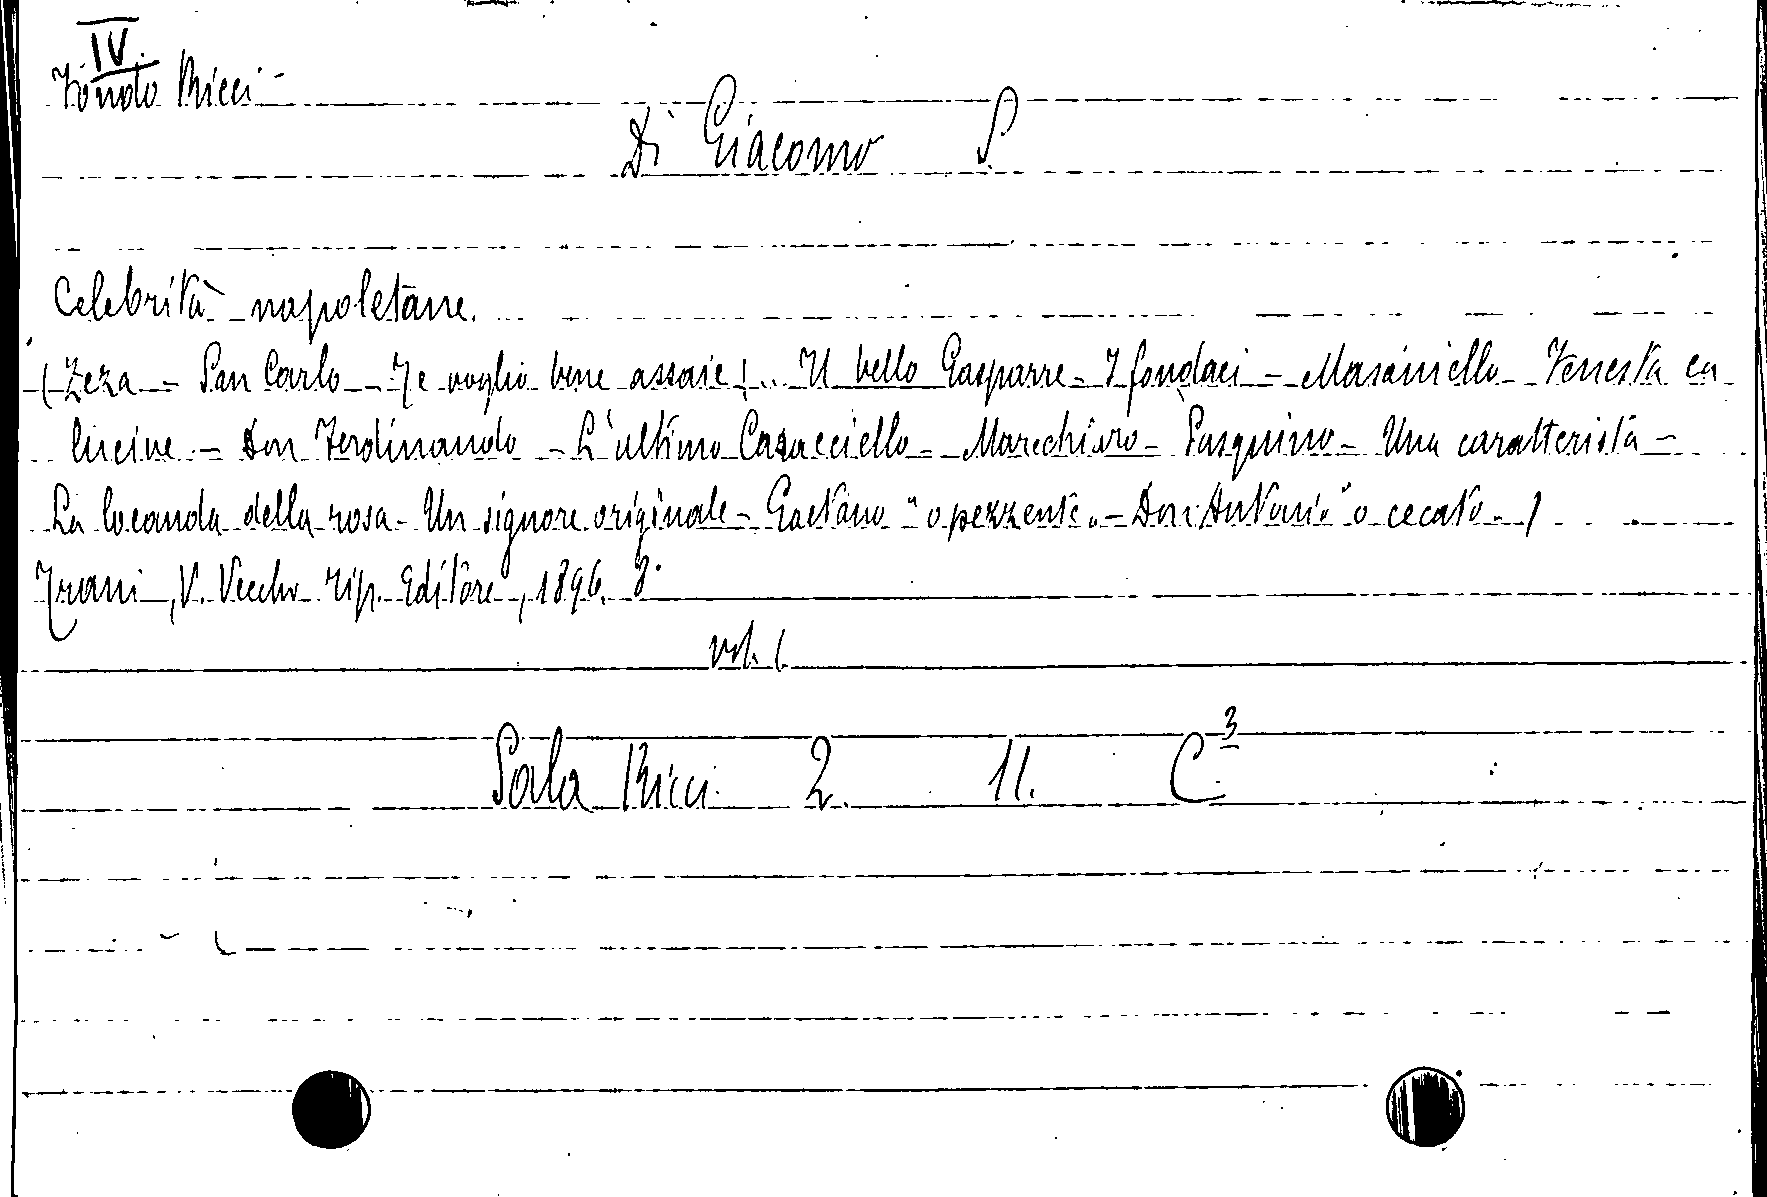 IV.
Fondo Ricci
Di Giacomo S.
Celebrità napoletane.
(Zeza - San Carlo - Te voglio bene assaie!... Il bello Gasparre - I fondaci - Masaniello - Fenesta ca
lucive - Don Ferdinando - L'ultimo Casacciello - Marechiaro - Pasquino - Una caratterista -
La locanda della rosa - Un signore originale - Gaetano "o pezzente" - Don Antonio "o cecato.)
Trani, V. Vecchi Tip. Editore, 1896. 8°
vol. 1.
Sala Ricci 2. 11. C.3